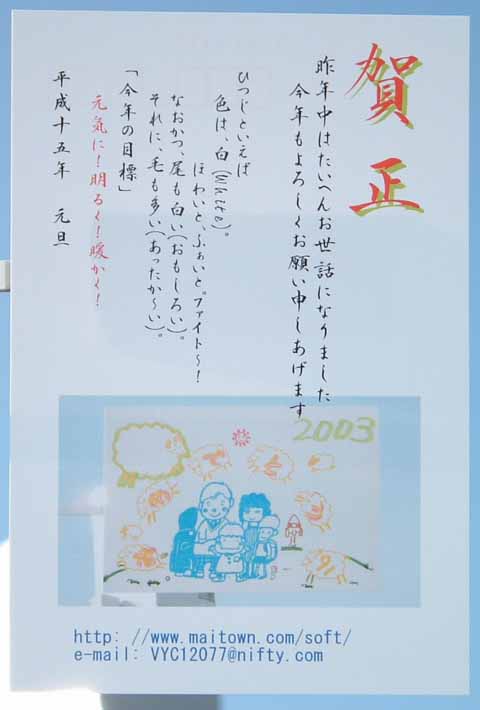 賀正
昨年中はたいへんお世話になりました
今年もよろしくお願い申しあげます
ひつじといえば
色は、白(White)。
ほわいと、ふぁいと。ファイト〜!
なおかつ、尾も白い(おもしろい)。
それに、毛も多い(あったか〜い)。
「今年の目標」
元気に!明るく!暖かく!
平成十五年 元旦
2003
http://www.maitown.com/soft/
e-mail: VYC12077@nifty.com